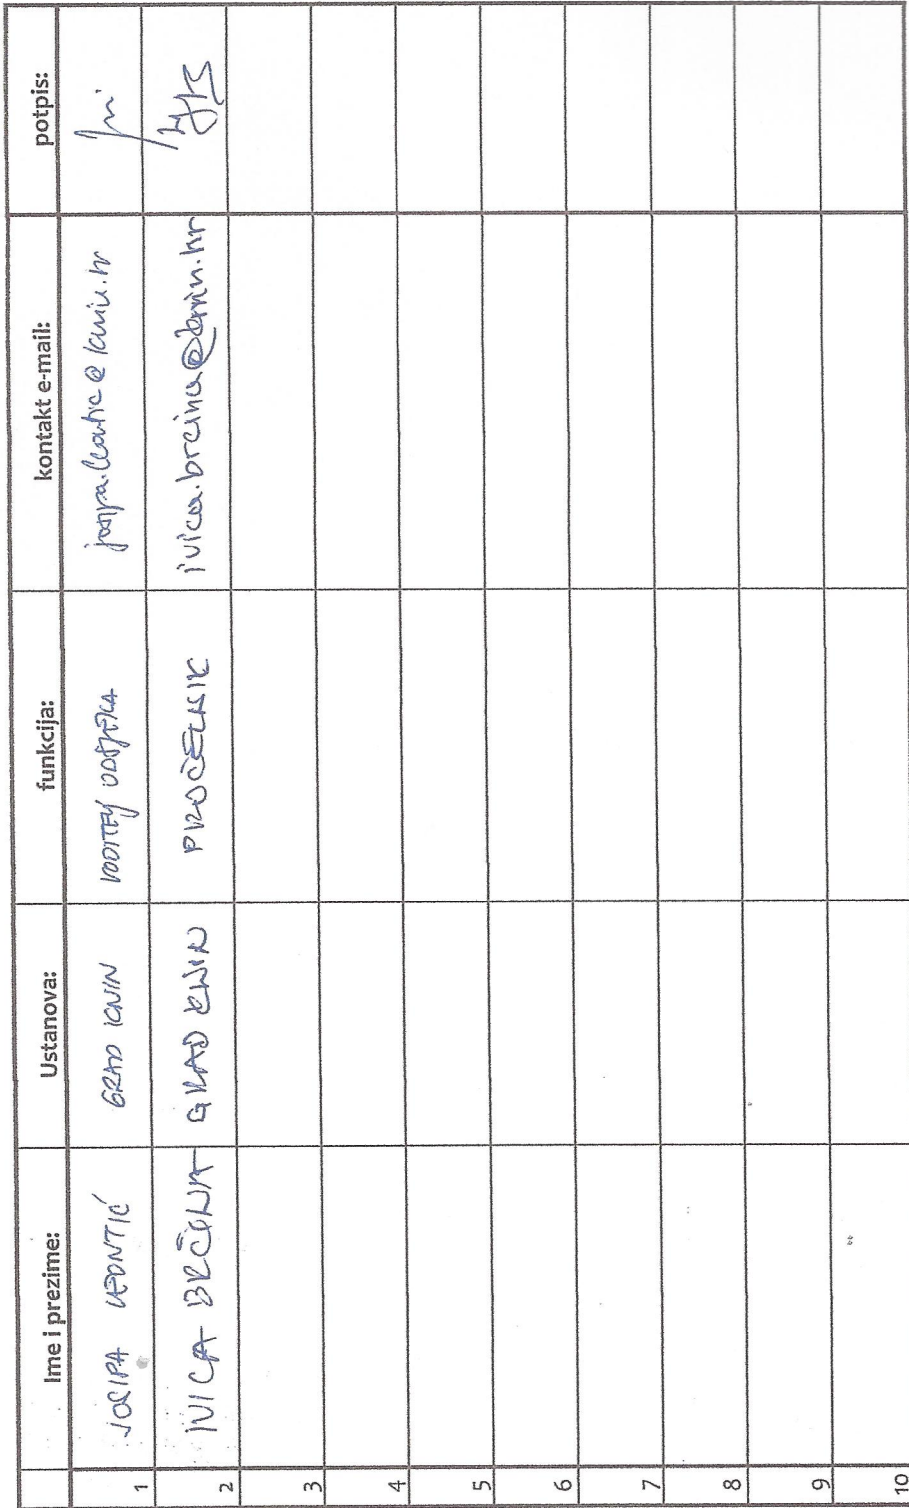 Ime i prezime: Ustanova: funkcija: kontakt e-mail: potpis:
1 JOSIPA LEONTIĆ GRAD KNIN VODITELJ ODSJEKA josipa.leontic@knin.hr
2 IVICA BRČINA GRAD KNIN PROČELNIK ivica.brcina@knin.hr
3
4
5
6
7
8
9
10